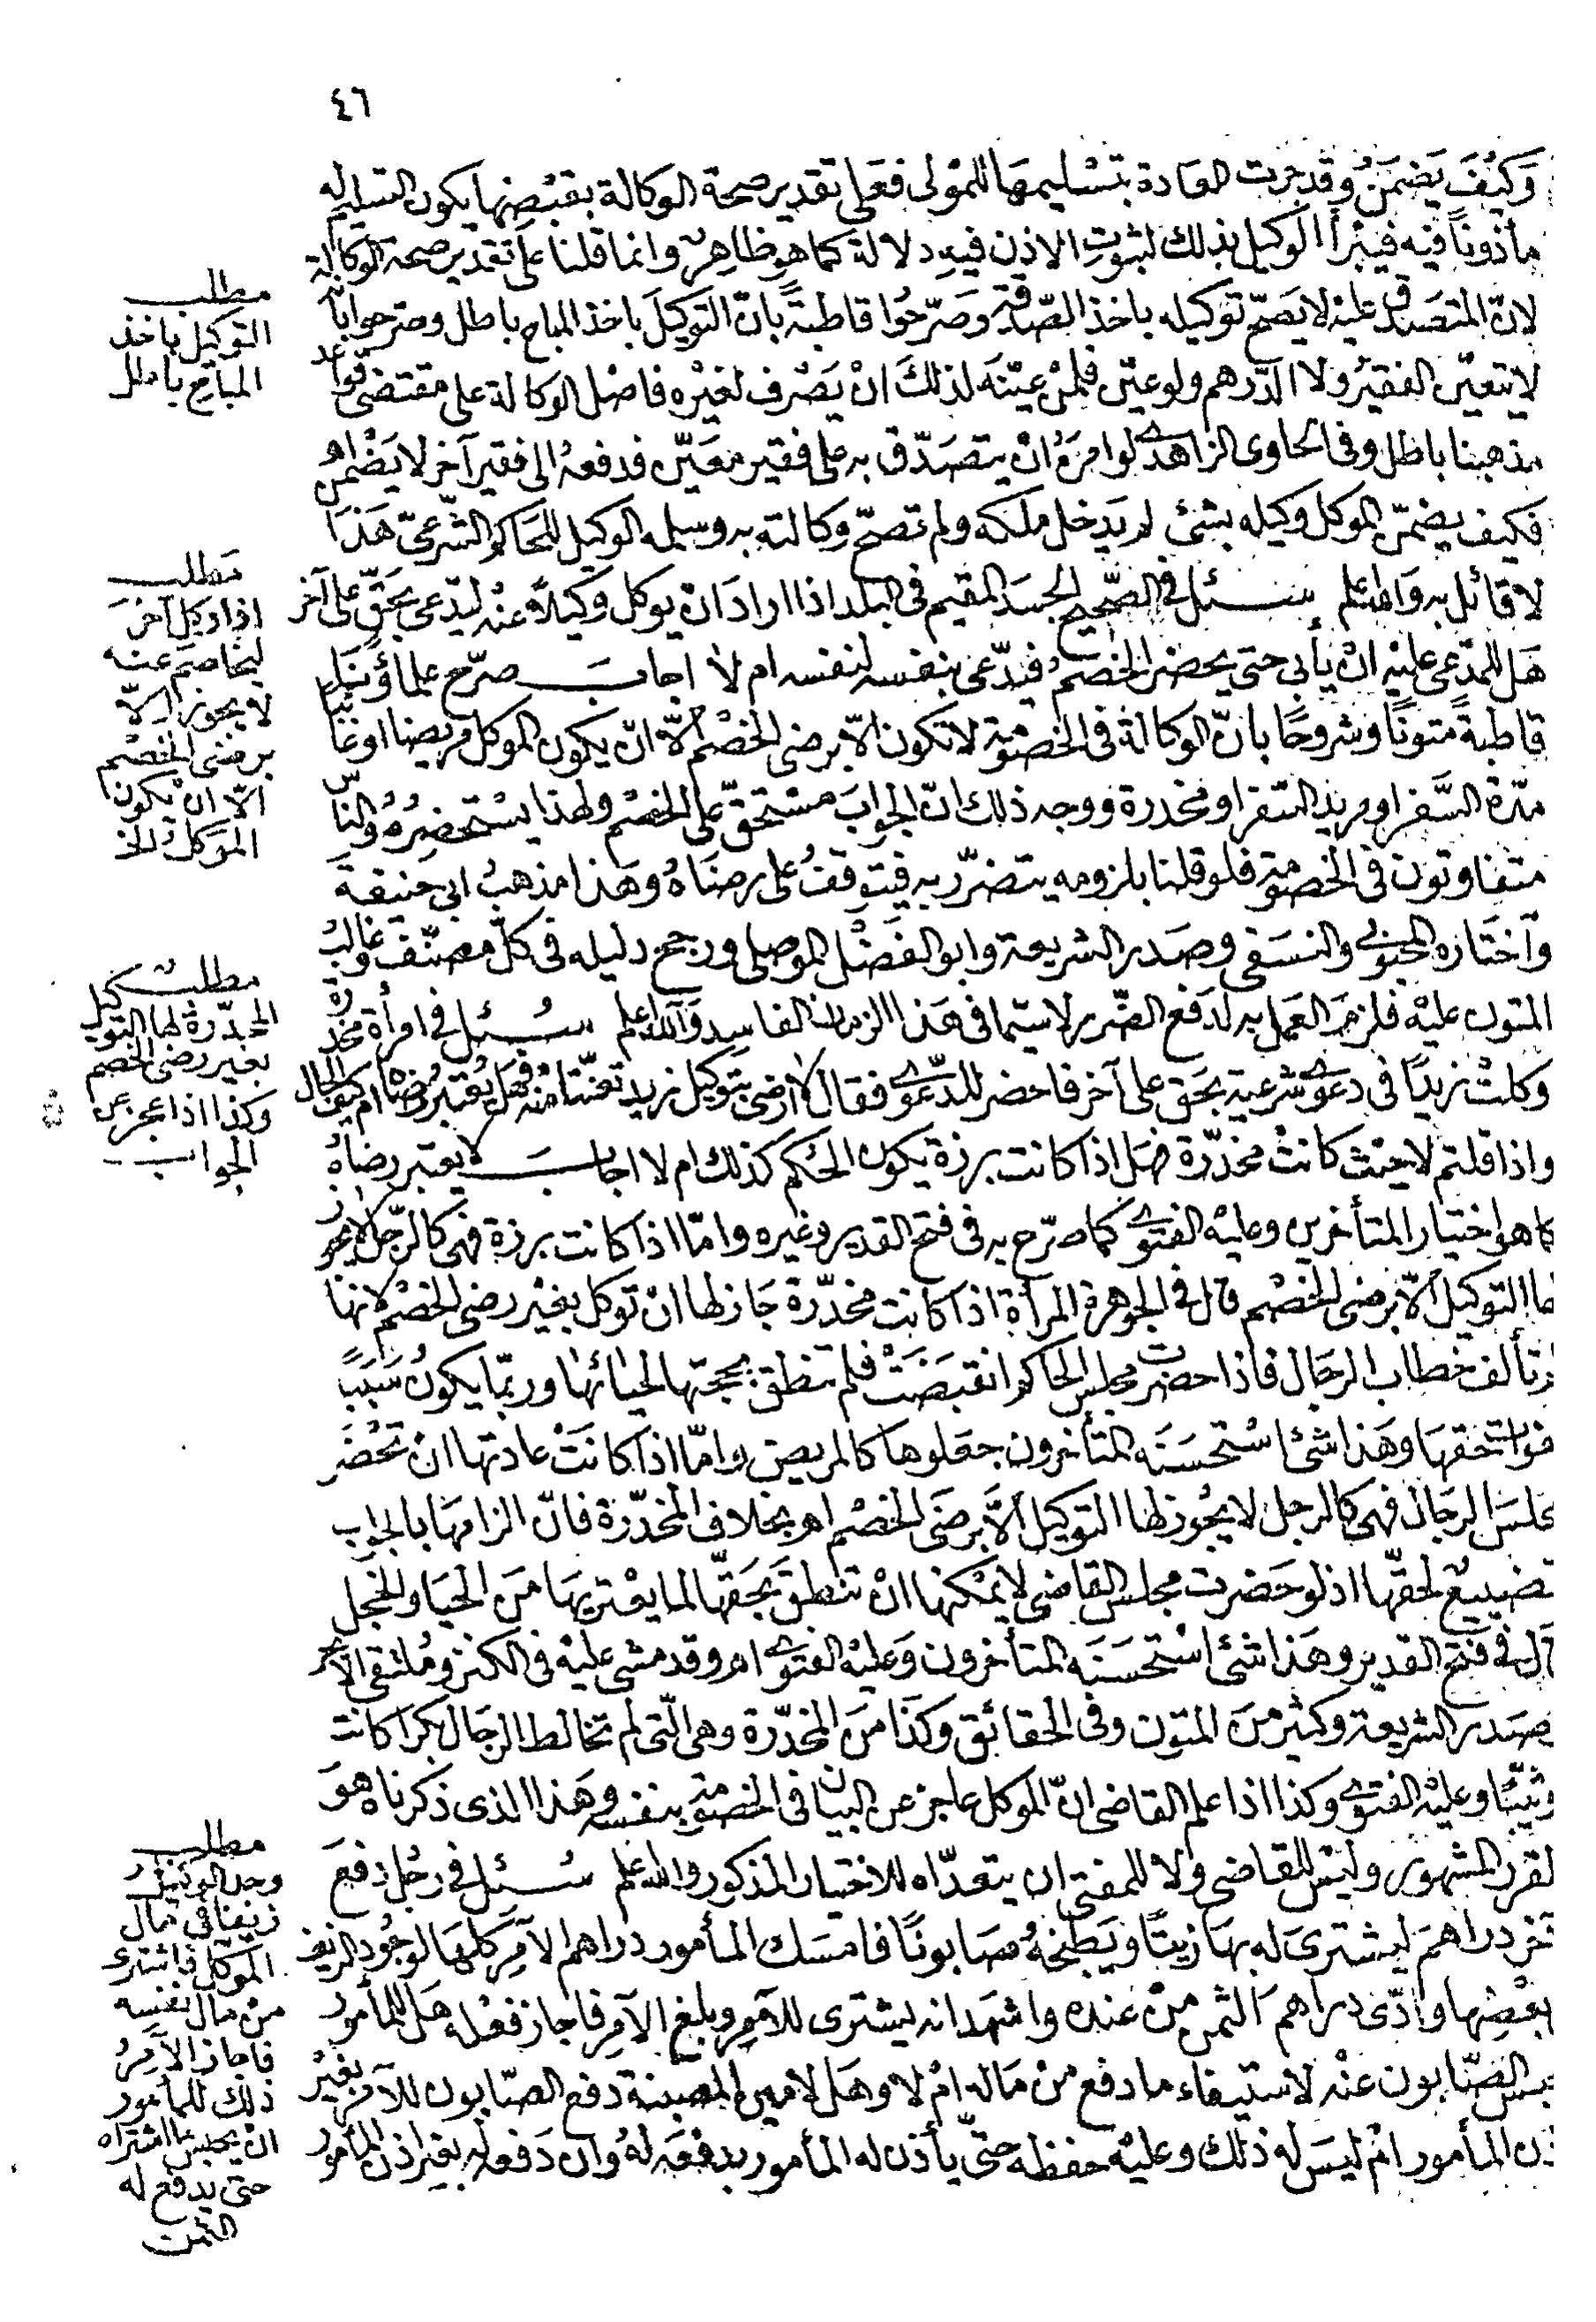 ٤٦
وَكَيْفَ يَضمَنُ وقد جرت العادة بتسْليمهَا للمْولى فعَلى تقدير صحة الوكالة بقبْضِها يكون التسليم له
مأذوناً فيه فيبْرأ الوكيل بذلك لثبوتِ الاذن فيهِ دلالة كما هو ظاهِر وانما قلنا على تقدير صحة الوكالة
لانّ المتصَدق عليْه لا يَصحّ توكيله باخذ الصّدقة وَصَرّحُوا قاطبةً بانّ التوكيلَ باخذ المباح باطل وصرحوا بانّه
لا يتعيّن الفقيرُ ولا الدّرهم ولو عيّن فلمنْ عيّنَه لذلكَ انْ يَصْرف لغيْره فاصْل الوكالة على مقتضى قواعد
مذهبنا باطل وفى الحاوى الزاهدى لو امرَهُ انْ يتصَدّق به على فقير معَيّن فدفعهُ الى فقير آخر لا يَضْمن اهـ
فكيف يضمّن الموكل وكيله بشئ لم يَدخل ملكه ولم تصحّ وكالته به وسلمه الوكيل للحَاكم الشّرعىّ هَذا
لا قائل به وَالله اعلم سئل فى الصّحيح الجسَد المقيم فى البلد اذا ارادَ انْ يوكل وكيلاً عنْه ليدّعى بحَقّ على آخر
هَل للمدّعى عليْه انْ يأبى حتى يحضر الخصمُ فيدّعى بنفسه لنفسه ام لا اجابَ صرّح علماؤنا
قاطبةً متونًا وشروحًا بانّ الوكالة فى الخصومة لا تكون الاّ برضى الخصْم الاّ انْ يكون الموكل مريضا او غائبا
مدّة السَّفر او مريد السّفر او مخدرة ووجه ذلك انّ الجوابَ مستحَقّ على الخصْم ولهذا يسْتحضِرُهُ والناس
متفاوتون فى الخصومة فلو قلنا بلزومه يتضرّر به فيتوقفُ على رضَاهُ وهَذا مذهبُ ابى حنيفةَ
وَاختارَه المحبوبى والنسَفى وصَدر الشريعة وابو الفضْل الموصلى ورجح دليله فى كلّ مصنّف وغالبُ
المتون عليْه فلزمَ العَمل به لدَفع الضّرر لاسيّما فى هَذا الزمان الفاسِد وَالله اعلم سُئل فى امرأة مخدرة
وكلتْ زيدًا فى دعوى شرعية بحَق على آخر فاحضر للدّعوى فقال لا ارضى بتوكيل زيد تعنّتا منه فهَل يُعْتبرُ رضاه ام كيف الحال
واذا قلتم لا حيْث كانتْ مخدّرة فهل اذا كانت برزة يكون الحُكم كذلك ام لا اجابَ لا يعتبر رضاهُ
كما هو اختيار المتأخرين وعليْه الفتوى كما صَرّح به فى فتح القدير وغيره وامّا اذا كانت برزة فهى كالرّجل لا يجوز
لها التوكيل الاّ برضى الخصْم قال فى الجوهرة المرأة اذا كانت مخدّرة جَاز لها انْ توكل بغيْر رضى الخصْم لانها
لم تألف خطاب الرجَال فاذا حضرت مجلس الحاكم انقبَضَتْ فلم تنطق بحجّتها لحيائها وربمّا يكون سَببًا
لفوات حقهَا وهَذا شئ اسْتحسَنَه المتأخرون جعَلوهَا كالمريض وامّا اذا كانَتْ عادتها انْ تحْضُر
مجلسَ الرجَال فهى كالرجل لا يجُوز لها التوكيل الاَّ برضَى الخصْم اهـ بخلاف المخدّرة فانّ الزامهَا بالجواب
تضييع لحقهّا اذ لو حَضرت مجلس القاضى لا يمْكنها انْ تنطقَ بحَقهّا لما يعْتريهَا منَ الحيَا والخجل
قال فى فتح القدير وهَذا شئ اسْتحسَنَه المتأخرون وَعليْه الفتوى اهـ وقد مشى عليْه فى الكنز ومُلتقى الابحر
وصَدر الشريعة وكثير منَ المتون وفى الحقائق وكذَا منَ المخدّرة وهى الّتى لم تخالط الرجَال بكرًا كانت
او ثيّبًا وعليْه الفتوى وكذا اذا علم القاضى انّ الموكل عاجز عن البيان فى الخصومة بنفسه وهَذا الذى ذكرناه هوَ
المقرر المشهور وليْس للقاضى ولا للمفتى ان يتعدّاه للاختيار المذكور والله اعلم سُئل فى رجُل دفعَ
لآخر دراهمَ ليشترىَ له بهَا زيتًا ويَطبخهُ صَابونًا فامسَك المأمور دراهم الآمِر كلهَا لوجُود الزيف
ببعْضِها وادّى دراهمَ الثمن منْ عنده واشهَد انه ليشترى للآمِر وبلغ الآمِر فاجاز فعْله هَل للمأمور
حبس الصّابون عنْه لاستيفاء ما دفع منْ مَاله امْ لا وهَل لامين المصبنة دفع الصّابون للآمر بغيْر
اذن المأمور امْ ليسَ له ذلك وعليْه حفظه حتىّ يأذن له المأمور بدفعَه لهُ وان دَفعه له بغير اذن المأمور
مطلب
التوكيل باخذ
المباح باطل
مَطلب
اذا وكل آخرَ
ليخاصم عنه
لا يجوز الاّ
برضى الخصْم
الاّ انْ يكون
الموكل الخ
مطلب
المخدّرة لها التوكيل
بغير رضى الخصم
وكذا اذا عجز عن
الجواب
مطلب
وجد الوكيل
زيفا فى مال
الموكل فاشترى
منْ مال نفسه
فاجاز الآمِرُ
ذلك للمأمور
انْ يحبس ما اشتراه
حتى يدفع له
الثمن